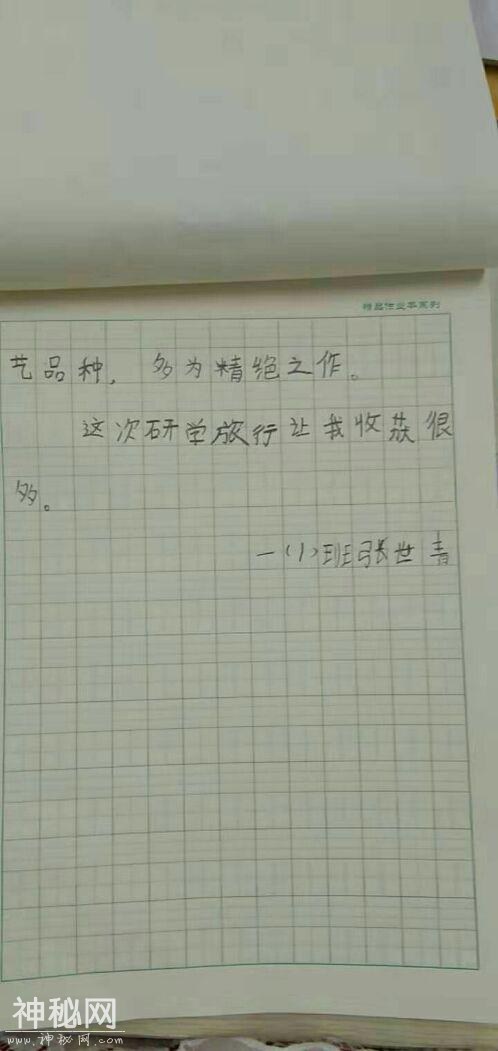 精品作业本系列
艺品种，多为精绝之作。
这次研学旅行让我收获很
多。
一(1)班张世青
神秘网
www.神秘网.com